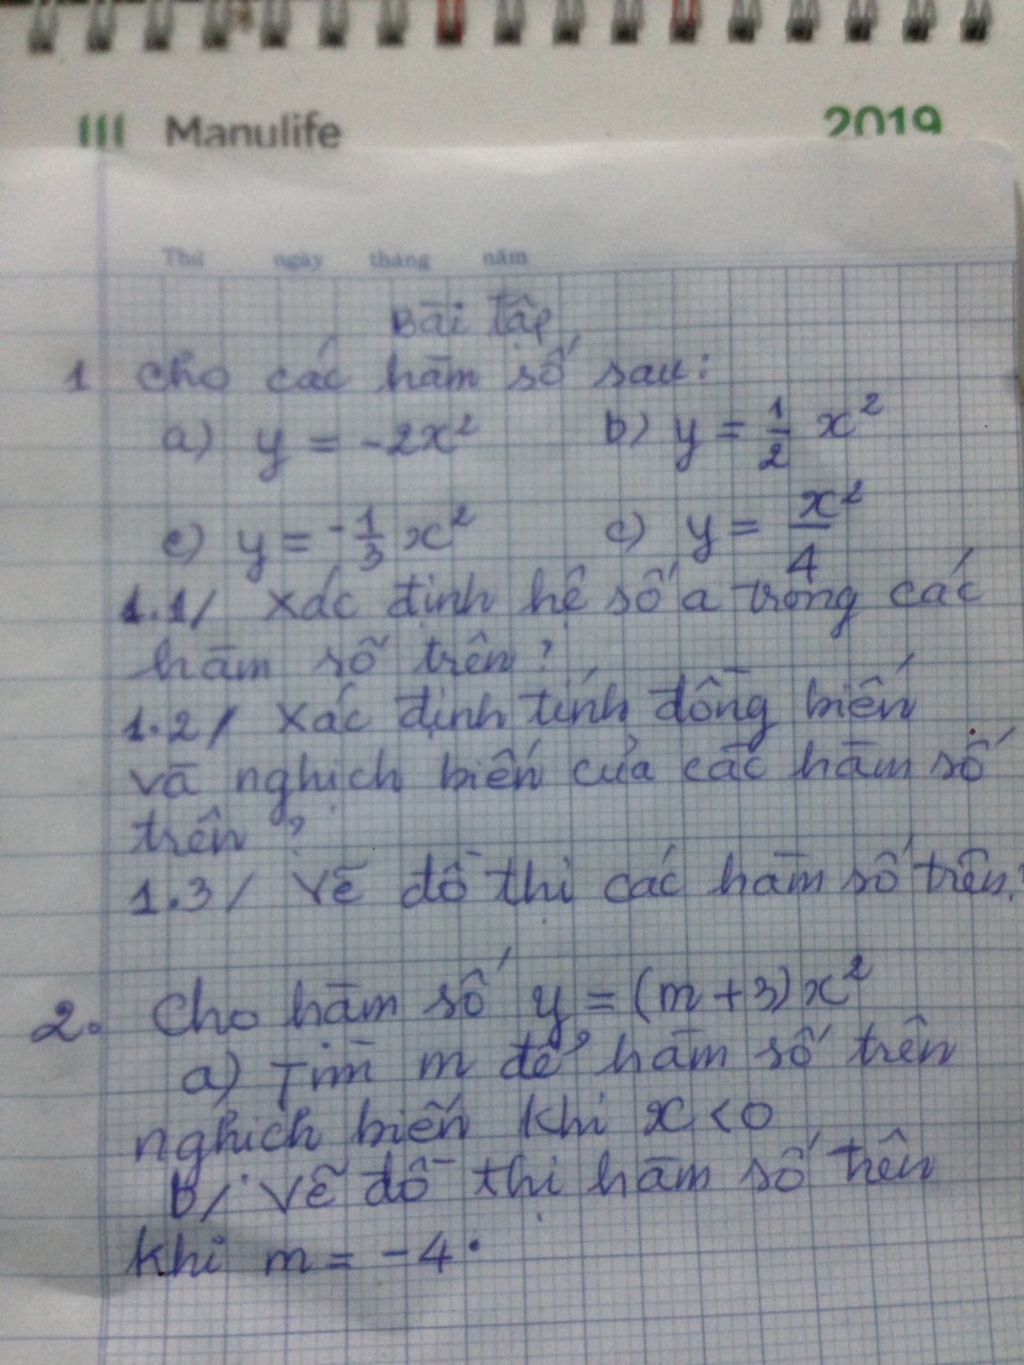 Manulife 2019
Thứ ngày tháng năm
Bài tập
1 Cho các hàm số sau:
a) y = -2x² b) y = 1/2 x²
c) y = -1/3 x² c) y = x²/4
1.1/ Xác định hệ số a trong các
hàm số trên?
1.2/ Xác định tính đồng biến
và nghịch biến của các hàm số
trên?
1.3/ Vẽ đồ thị các hàm số trên?
2. Cho hàm số y = (m+3)x²
a) Tìm m để hàm số trên
nghịch biến khi x < 0
b/ Vẽ đồ thị hàm số trên
khi m = -4.